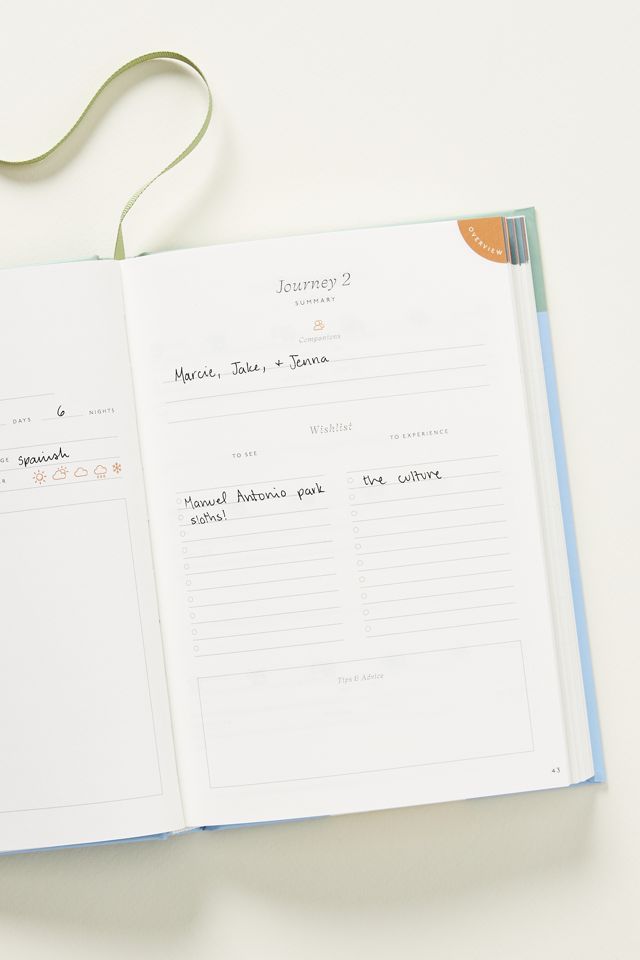 DAYS 6 NIGHTS
GE Spanish
ER
OVERVIEW
Journey 2
SUMMARY
Companions
Marcie, Jake, + Jenna
Wishlist
TO SEE
Manuel Antonio park
sloths!
TO EXPERIENCE
the culture
Tips & Advice
43